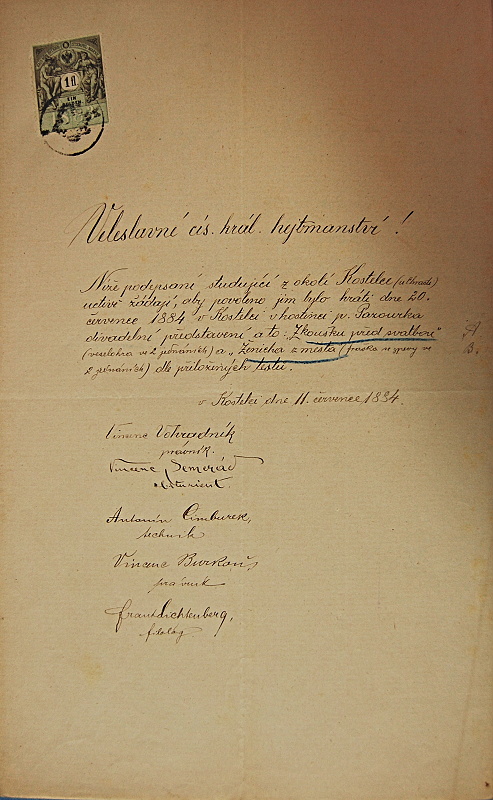 1 fl
Veleslavné cís. král. hejtmanství!
Níže podepsaní studující z okolí Kostelce
uctivě žádají, aby povoleno jim bylo hráti dne 20.
července 1884 v Kostelci v hostinci p. Pazourka
divadelní představení a to: „Zkoušku před svatbou"
(veselohra ve 2 jednáních) a „Ženicha z města (fraška se zpěvy ve
2 jednáních) dle přiložených textů.
A
B.
v Kostelci dne 11. července 1884.
Vincenc Vohradník
právník.
Vincenc Semerád
abiturient.
Antonín Cimburek,
technik
Vincenc
právník
Frant. Lichtenberg,
filolog